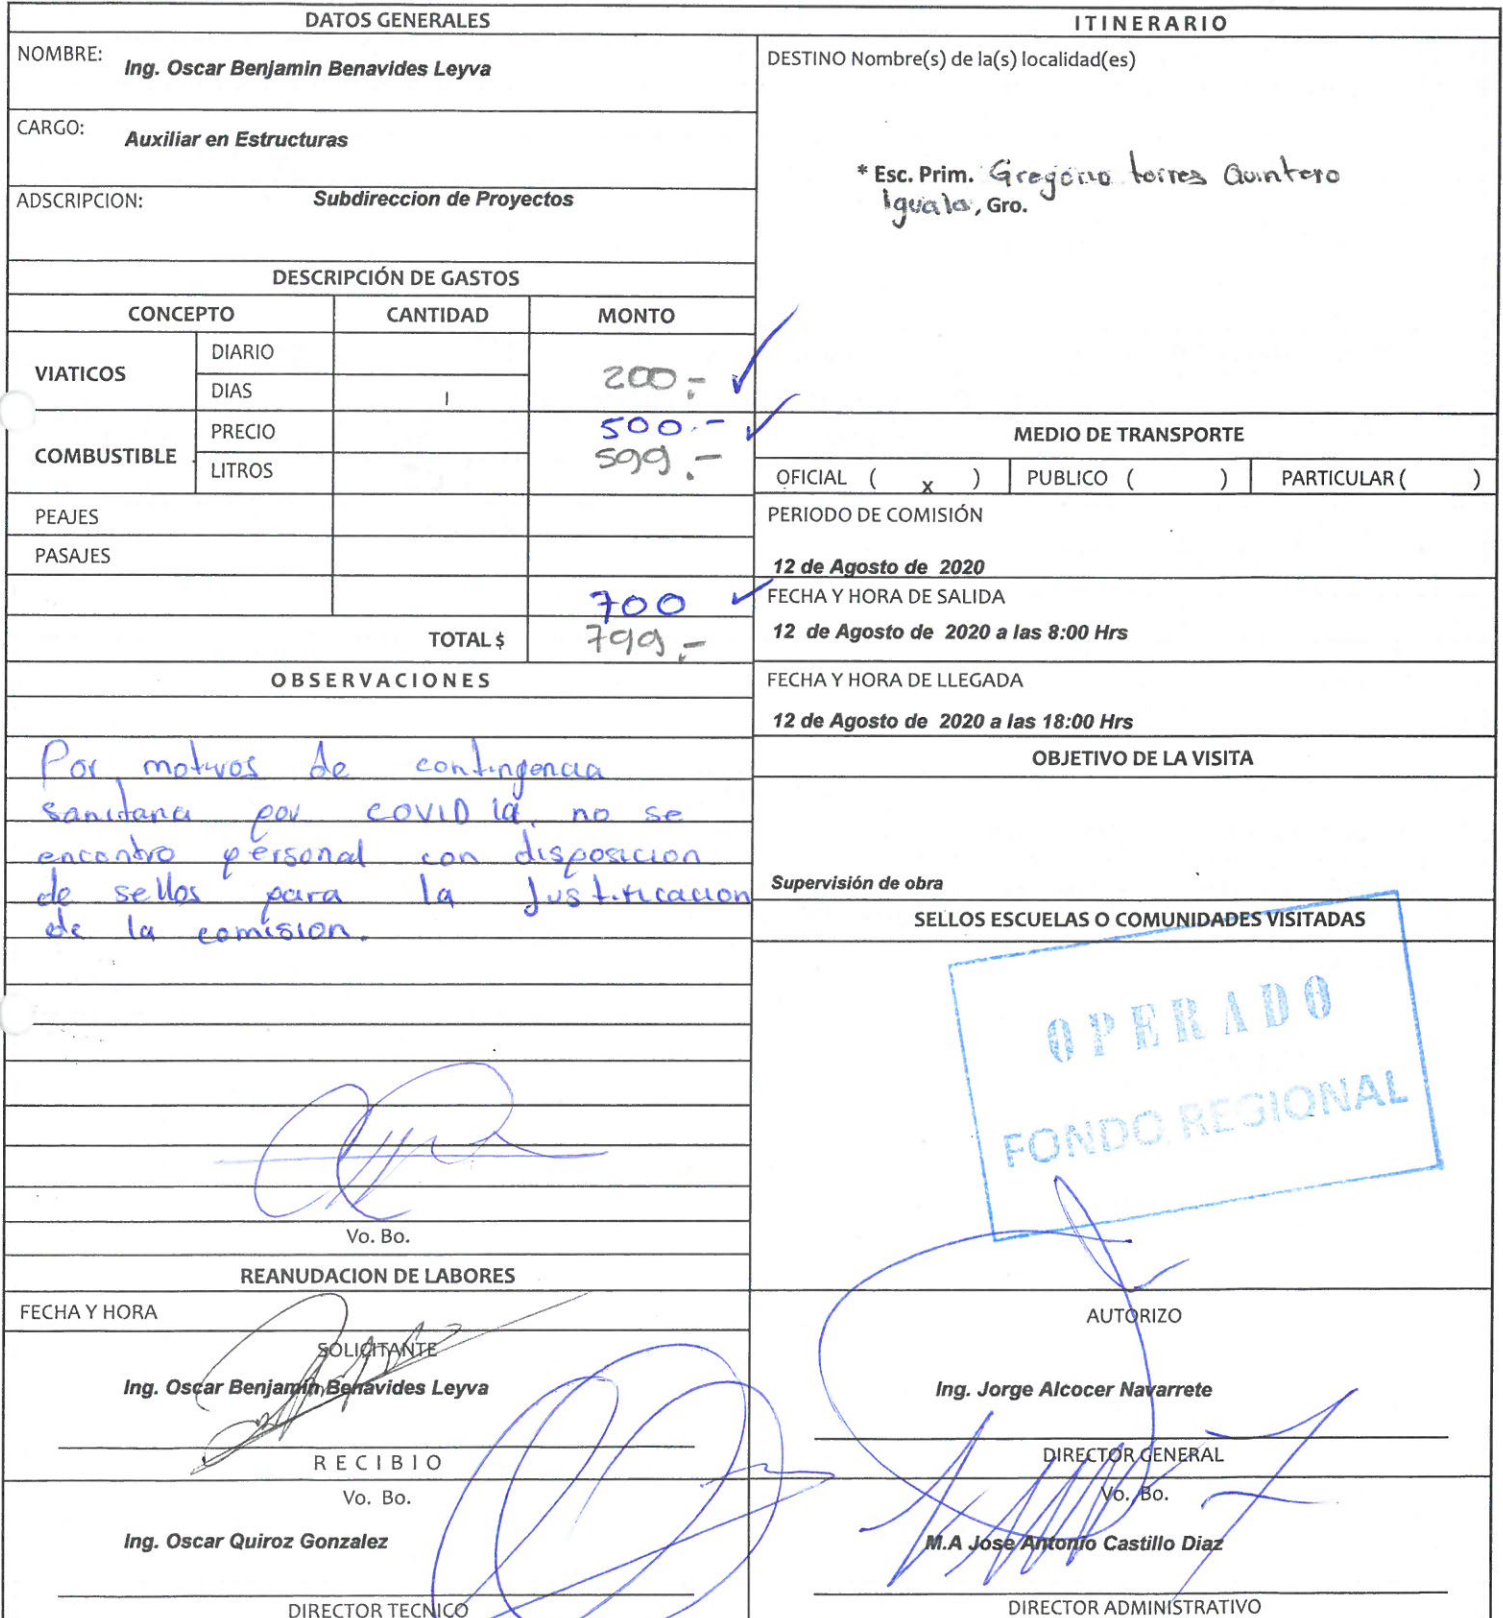 DATOS GENERALES
NOMBRE:
Ing. Oscar Benjamin Benavides Leyva
CARGO:
Auxiliar en Estructuras
ADSCRIPCION:
Subdireccion de Proyectos
DESCRIPCIÓN DE GASTOS
CONCEPTO CANTIDAD MONTO
VIATICOS
DIARIO
DIAS 1
200.-
COMBUSTIBLE
PRECIO 500.-
LITROS 599.-
PEAJES
PASAJES
700
TOTAL $ 799.-
OBSERVACIONES
Por motivos de contingencia
sanitaria por COVID 19, no se
encontro personal con disposicion
de sellos para la Justificacion
de la comision.
Vo. Bo.
REANUDACION DE LABORES
FECHA Y HORA
SOLICITANTE
Ing. Oscar Benjamin Benavides Leyva
RECIBIO
Vo. Bo.
Ing. Oscar Quiroz Gonzalez
DIRECTOR TECNICO
ITINERARIO
DESTINO Nombre(s) de la(s) localidad(es)
* Esc. Prim. Gregorio torres Quintero
Iguala, Gro.
MEDIO DE TRANSPORTE
OFICIAL ( x ) PUBLICO ( ) PARTICULAR ( )
PERIODO DE COMISIÓN
12 de Agosto de 2020
FECHA Y HORA DE SALIDA
12 de Agosto de 2020 a las 8:00 Hrs
FECHA Y HORA DE LLEGADA
12 de Agosto de 2020 a las 18:00 Hrs
OBJETIVO DE LA VISITA
Supervisión de obra
SELLOS ESCUELAS O COMUNIDADES VISITADAS
OPERADO
FONDO REGIONAL
AUTORIZO
Ing. Jorge Alcocer Navarrete
DIRECTOR GENERAL
Vo. Bo.
M.A Jose Antonio Castillo Diaz
DIRECTOR ADMINISTRATIVO